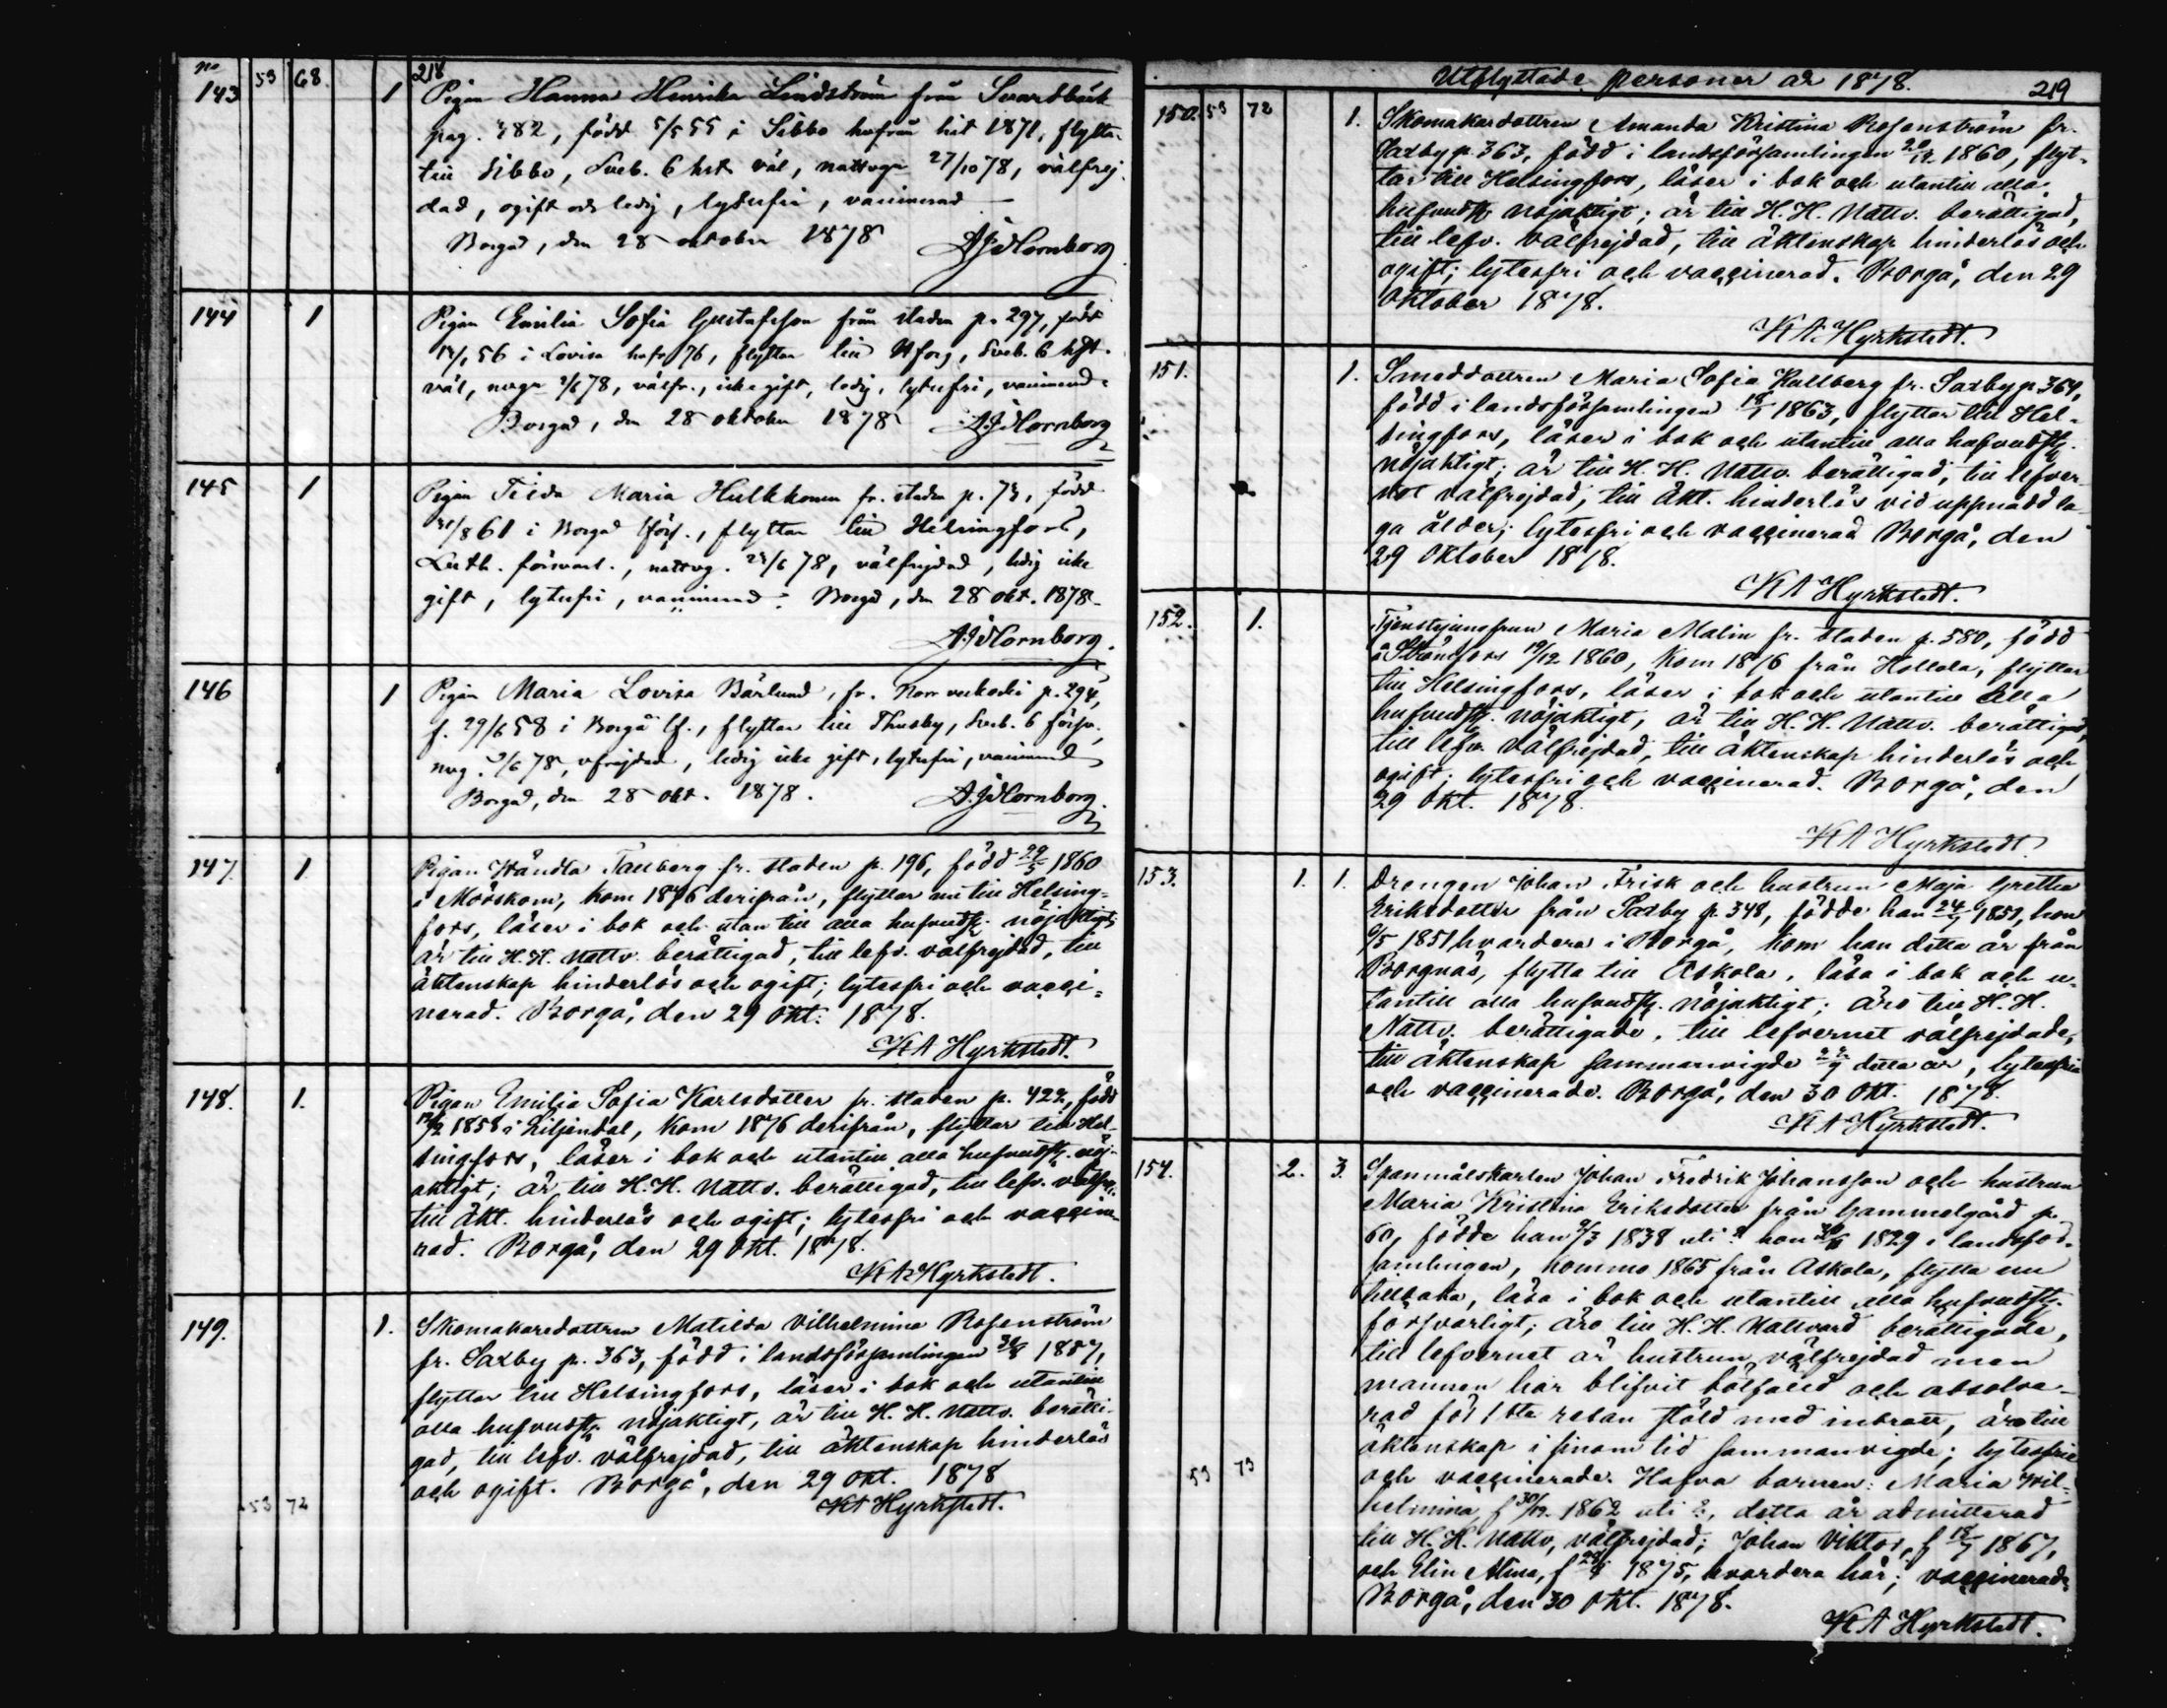 218
No 143 53 68 1 Pigan Hanna Henrika Lindström från Svartbäck
pag. 382, född 5/5 55 i Sibbo hufrån hit 1871, flytta-
till Sibbo, Sveb. 6 hst. väl, nattvgn 27/10 78, välfrej.
dad, ogift och ledig, lytesfri, vaccinerad
Borgå, den 28 oktober 1878 A.J. Hornborg
144 1 Pigan Emilia Sofia Gustafsson från staden p. 297, född
/1 56 i Lovisa 76, flyttar till Sveb. 6 hst.
väl, nvgn 78, välfr., icke gift, ledig, lytesfri, vaccinerad.
Borgå, den 28 oktober 1878 A.J. Hornborg
145 1 Pigan Tilda Maria Hulkkonen fr. staden p. 73, född
/8 61 i Borgå lförs., flyttar till Helsingfors,
Luth. försvarl., nattvg. /6 78, välfrejdad, ledig icke
gift, lytesfri, vaccinerad. Borgå, den 28 okt. 1878.
A.J. Hornborg.
146 1 Pigan Maria Lovisa Bärlund, fr. Norr p. 294,
f. 29/6 58 i Borgå lf., flyttar till Thusby, Sveb. 6 försv.,
nvg. /6 78, vfrejdad, ledig icke gift, lytesfri, vaccinerad
Borgå, den 28 okt. 1878. A.J. Hornborg.
147. 1. Pigan Wändla Tallberg fr. staden p. 196, född 29/5 1860
i Mörskom, kom 1876 derifrån, flyttar nu till Helsing=
fors, läser i bok och utan till alla hufvudst. nöjaktigt;
är till H. H. Nattv. berättigad, till lefv. välfrejdad, till
äktenskap hinderlös och ogift; lytesfri och vacci=
nerad. Borgå, den 29 Okt. 1878.
K A Hyrkstedt.
148. 1. Pigan Emilia Sofia Karlsdotter fr. staden p. 422, född
/2 1858 i Liljendal, kom 1876 derifrån, flyttar till Hel-
singfors, läser i bok och utantill alla hufvudst. nöj-
aktigt; är till H. H. Nattv. berättigad, till lefv. välfr.,
till äkt. hinderlös och ogift; lytesfri och vaccine-
rad. Borgå, den 29 Okt. 1878.
K A Hyrkstedt.
149. 1. Skomakaredottren Matilda Vilhelmina Rosenström
fr. Saxby p. 363, född i landsförsamlingen 1857,
flyttar till Helsingfors, läser i bok och utantill
alla hufvudst. nöjaktigt, är till H. H. Nattv. berätti-
gad, till lefv. välfrejdad, till äktenskap hinderlös
och ogift. Borgå, den 29 Okt. 1878
53 72 K A Hyrkstedt.
Utflyttade personer år 1878. 219
150. 53 72 1. Skomakardottren Amanda Kristina Rosenström fr.
Saxby p. 363, född i landsförsamlingen 20/12 1860, flyt-
tar till Helsingfors, läser i bok och utantill alla
hufvudst. nöjaktigt; är till H. H. Nattv. berättigad,
till lefv. välfrejdad, till äktenskap hinderlös och
ogift; lytesfri och vaccinerad. Borgå, den 29
Oktober 1878.
K A Hyrkstedt.
151. 1. Smeddottren Maria Sofia Kullberg fr. Saxby p. 364,
född i landsförsamlingen 1863, flyttar till Hel-
singfors, läser i bok och utantill alla hufvudst.
nöjaktigt; är till H. H. Nattv. berättigad, till lefver-
net välfrejdad, till äkt. hinderlös vid uppnådd la-
ga ålder; lytesfri och vaccinerad. Borgå, den
29 Oktober 1878.
K A Hyrkstedt.
152. 1. Tjenstejungfrun Maria Malin fr. staden p. 580, född
i Strömfors 19/12 1860, kom 1876 från Hollola, flyttar
till Helsingfors, läser i bok och utantill alla
hufvudst. nöjaktigt, är till H. H. Nattv. berättigad,
till lefv. välfrejdad, till äktenskap hinderlös och
ogift; lytesfri och vaccinerad. Borgå, den
29 Okt. 1878.
K A Hyrkstedt.
153. 1. 1. Drengen Johan Frisk och hustrun Maja Gretha
Eriksdotter från Saxby p. 348, födde han 1851, hon
/5 1851 hvardera i Borgå, kom han detta år från
Borgnäs, flytta till Askola, läsa i bok och u-
tantill alla hufvudst. nöjaktigt; äro till H. H.
Nattv. berättigade, till lefvernet välfrejdade,
till äktenskap sammanvigde detta år, lytesfria
och vaccinerade. Borgå, den 30 Okt. 1878.
K A Hyrkstedt.
154. 2. 3. Spanmålskarlen Johan Fredrik Johansson och hustrun
Maria Kristina Eriksdotter från Gammelgård p.
60, födde han /3 1838 uti ? hon 1829 i landsför-
samlingen, kommo 1865 från Askola, flytta nu
tillbaka, läsa i bok och utantill alla hufvudst.
försvarligt; äro till H. H. Nattvard berättigade,
till lefvernet är hustrun välfrejdad men
mannen har blifvit bötfälld och absolve-
rad för 1sta resan stöld med inbrott, äro till
äktenskap i sinom tid sammanvigde; lytesfria
53 73 och vaccinerade. Hafva barnen: Maria Wil-
helmina, f 30/12 1862 uti ?, detta år admitterad
till H. H. Nattv, välfrejdad; Johan Viktor, f 1867,
och Elin Alma, f 1875, hvardera här; vaccinerade
Borgå, den 30 Okt. 1878.
K A Hyrkstedt.